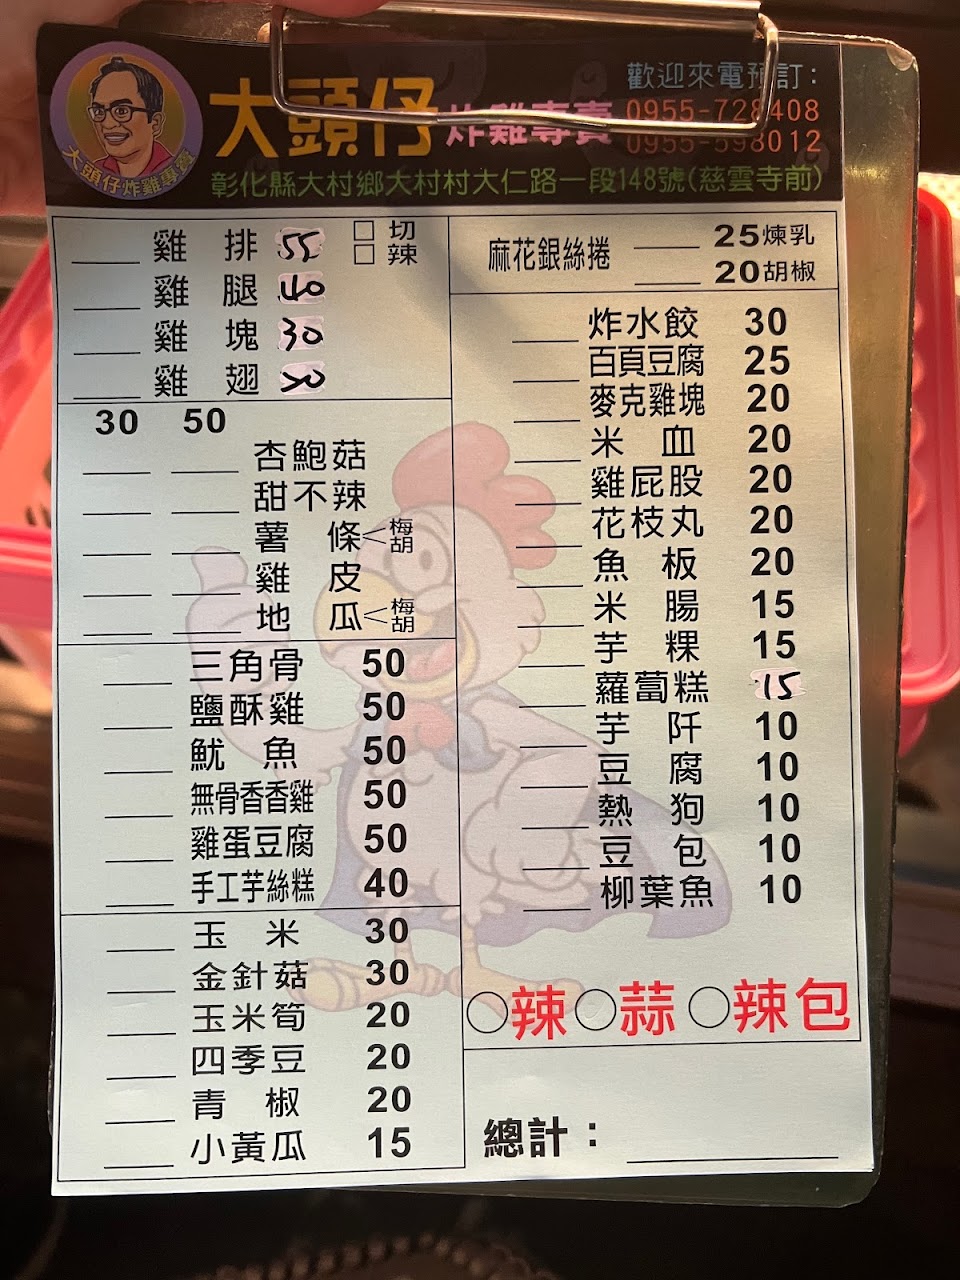 大頭仔炸雞專賣
大頭仔 炸雞專賣
歡迎來電預訂:
0955-728408
0955-598012
彰化縣大村鄉大村村大仁路一段148號(慈雲寺前)
雞排 55 □切 □辣
雞腿 40
雞塊 30
雞翅
30 50
杏鮑菇
甜不辣
薯條<梅胡
雞皮
地瓜<梅胡
三角骨 50
鹽酥雞 50
魷魚 50
無骨香香雞 50
雞蛋豆腐 50
手工芋絲糕 40
玉米 30
金針菇 30
玉米筍 20
四季豆 20
青椒 20
小黃瓜 15
麻花銀絲捲 25煉乳
20胡椒
炸水餃 30
百頁豆腐 25
麥克雞塊 20
米血 20
雞屁股 20
花枝丸 20
魚板 20
米腸 15
芋粿 15
蘿蔔糕 15
芋阡 10
豆腐 10
熱狗 10
豆包 10
柳葉魚 10
○辣○蒜○辣包
總計：